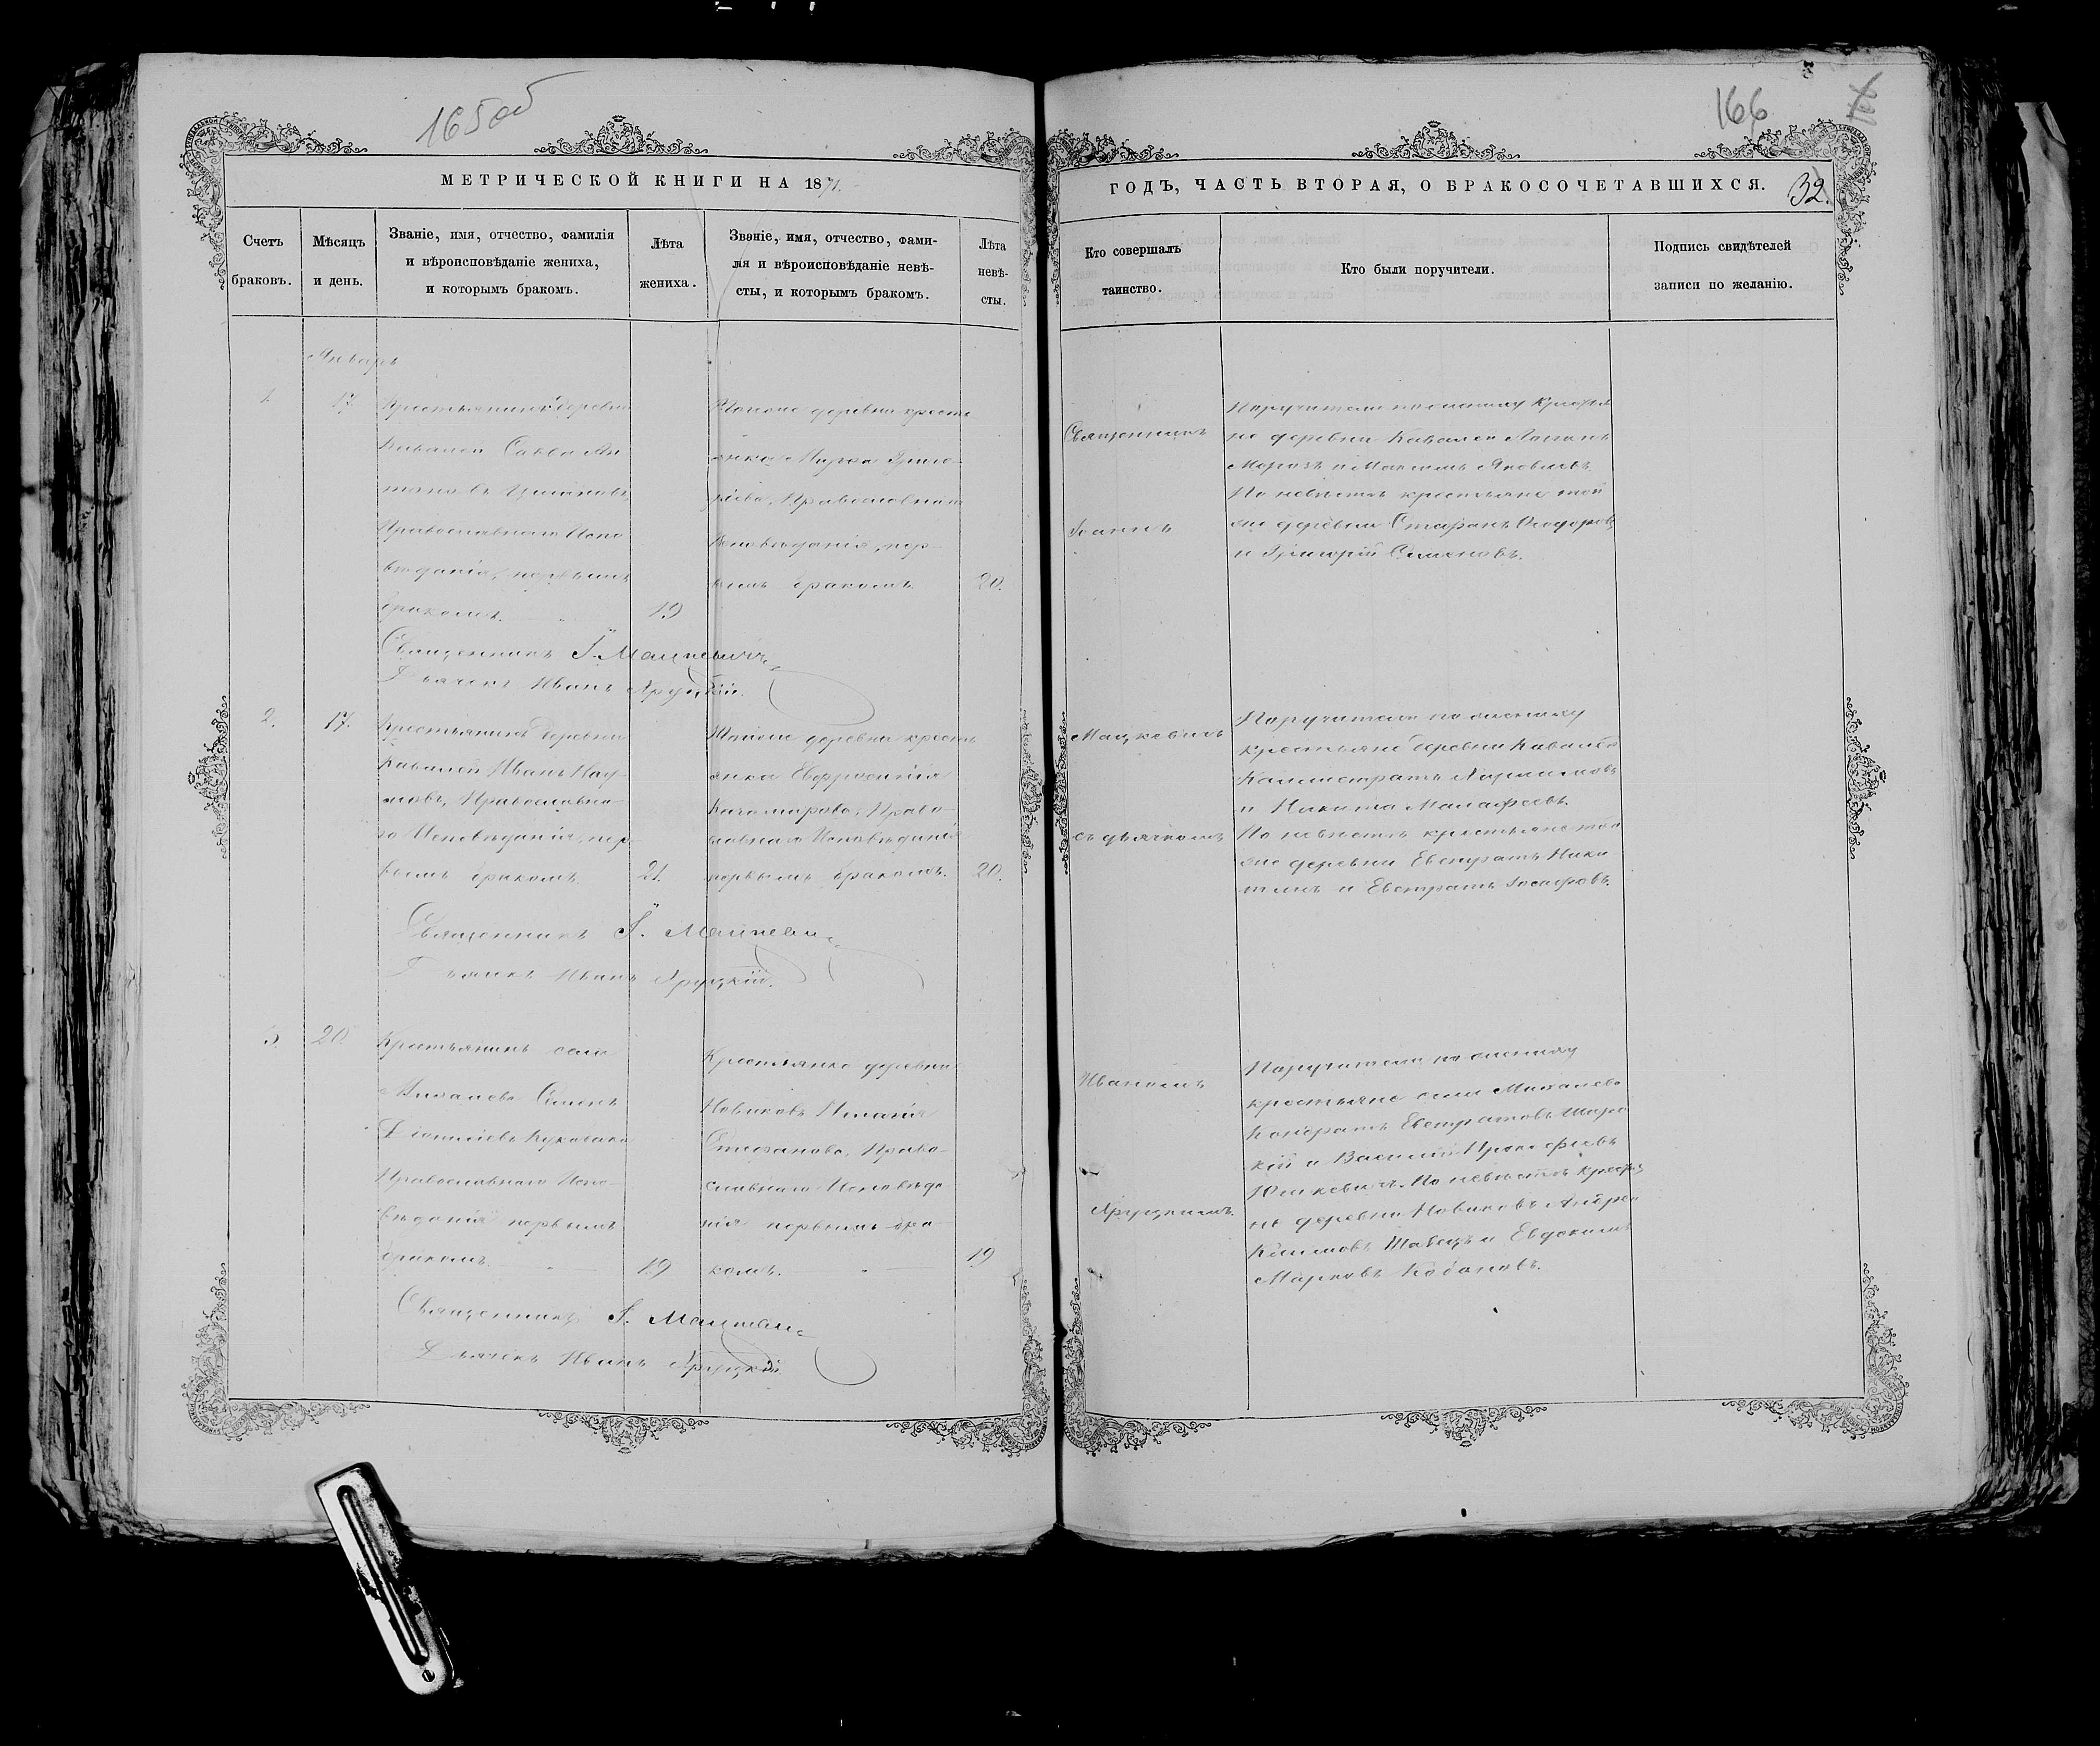 165об
МЕТРИЧЕСКОЙ КНИГИ НА 1871.
Счетъ браковъ.
Мѣсяцъ и день.
Званіе, имя, отчество, фамилія
и вѣроисповѣданіе жениха,
и которымъ бракомъ.
Лѣта жениха.
Званіе, имя, отчество, фами-
лія и вѣроисповѣданіе невѣ-
сты, и которымъ бракомъ.
Лѣта невѣ-
сты.
Январь
1. 17.
Крестьянинъ деревни
Савва Ан
тоновъ
Православнаго Испо
вѣданія, первымъ
бракомъ. 19
Тойже деревни кресть
янка Марѳа Григо-
ріева, Православнаго
Исповѣданія, пер-
вымъ бракомъ. 20.
Священникъ І. Мацкевичъ
Дьячекъ Иванъ Хруцкій.
2. 17.
Крестьянинъ деревни
Иванъ Нау-
мовъ, Православна-
го Исповѣданія, пер-
вымъ бракомъ. 21.
Тойже деревни кресть
янка Евфросинія
Право-
славнаго Исповѣданія
первымъ бракомъ. 20.
Священникъ І. Мацкевич
Дьячекъ Иванъ Хруцкій.
3. 20.
Крестьянинъ села
Михалева Симонъ
Діонисіевъ
Православнаго Испо-
вѣданія первымъ
бракомъ. 19
Крестьянка деревни
Новиковъ
Стефанова, Право-
славнаго Исповѣда
нія первымъ бра-
комъ. 19
Священникъ І. Мацкевич
Дьячекъ Иванъ Хруцкій.
166
ГОДЪ, ЧАСТЬ ВТОРАЯ, О БРАКОСОЧЕТАВШИХСЯ.
32.
Кто совершалъ
таинство.
Кто были поручители.
Подпись свидѣтелей
записи по желанію.
Священникъ
Іоаннъ
Мацкевичъ
съ дьячкомъ
Иваномъ
Хруцкимъ.
Поручители по жениху Крестья
не деревни
Морозъ и Максимъ Яковлевъ.
По невѣстѣ крестьяне той
же деревни Стефанъ Ѳеодоровъ
и Григорій Симоновъ.
Поручители по жениху
крестьяне деревни
Каллистратъ
и Никита Малафеевъ.
По невѣстѣ крестьяне той
же деревни Евстратъ Ники
тинъ и Евстратъ Іосифовъ.
Поручители по жениху
крестьяне села Михалева
Кондратъ Евстратовъ
кій и Василій Прокофіевъ
Юшкевичъ. По невѣстѣ Крестья
не деревни Новиковъ Андрей
Климовъ Швецъ и Евдокимъ
Марковъ